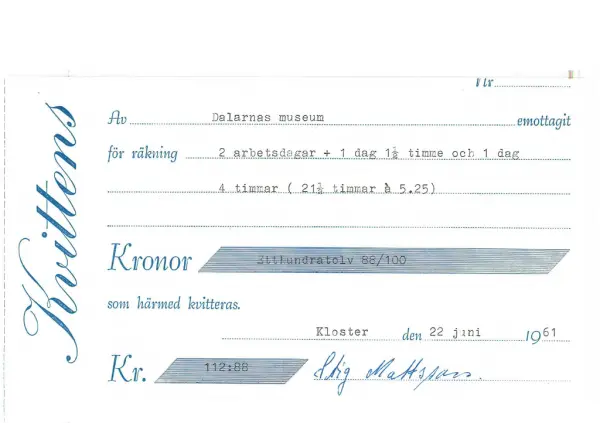 Kvittens
Nr
Av Dalarnas museum emottagit
för räkning 2 arbetsdagar + 1 dag 1½ timme och 1 dag
4 timmar ( 21½ timmar à 5.25)
Kronor Etthundratolv 88/100
som härmed kvitteras.
Kloster den 22 juni 1961
Kr. 112:88 Stig Mattsson.